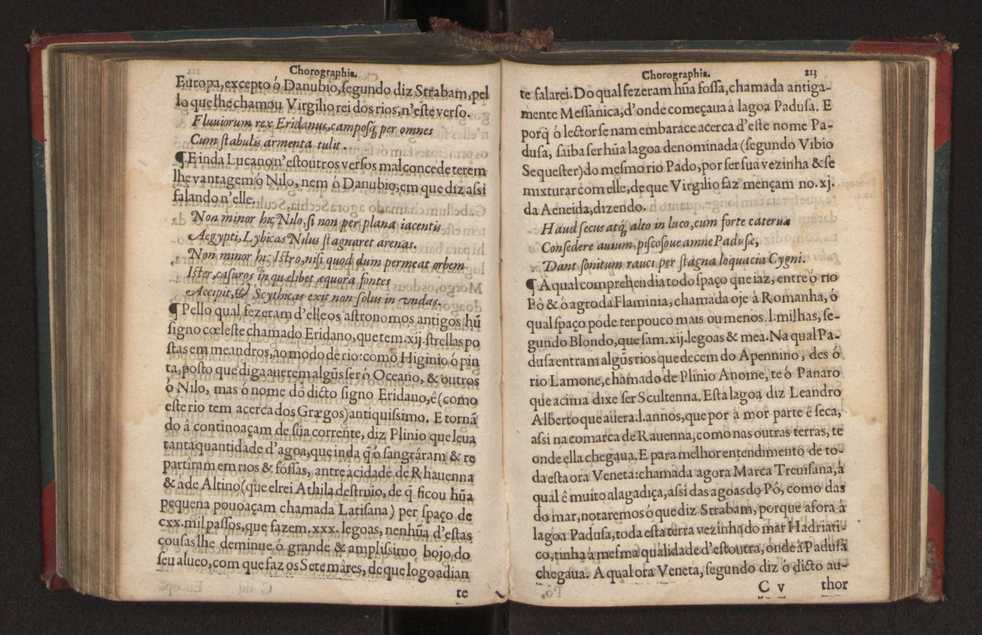 Chorographia.
Europa, excepto ó Danubio, segundo diz Strabam, pel
lo que lhe chamou Virgilio rei dos rios, n'este verso.
Fluuiorum rex Eridanus, camposq; per omnes
Cum stabulis armenta tulit.
¶ E inda Lucano n'estoutros versos mal concede terem
lhe vantagem ó Nilo, nem ó Danubio, em que diz assi
falando n'elle.
Non minor hic Nilo, si non per plana iacentis
Aegypti, Lybicas Nilus stagnaret arenas.
Non minor hic Istro, nisi quod dum permeat orbem
Ister, casuros in quælibet æquora fontes
Accipit, & Scythicas exit non solus in vndas.
¶ Pello qual fezeram d'elle os astronomos antigos hũ
signo cœleste chamado Eridano, que tem xij. strellas po
stas em meandros, ao modo de rio: como Higinio ó pin
ta, posto que diga auerem algũs ser ó Oceano, & outros
ó Nilo, mas ó nome dó dicto signo Eridano, é (como
este rio tem acerca dos Grægos) antiquissimo. E tornã
do á continoaçam de sũa corrente, diz Plinio que leua
tanta quantidade d'agoa, que inda q̃ ó sangráram & re
partiram em rios & fossas, antre à cidade de Rhauenna
& à de Altino (que elrei Athila destruio, de q̃ ficou hũa
pequena pouoaçam chamada Latisana) per spaço de
cxx. mil passos, que fazem. xxx. legoas, nenhũa d'estas
cousas lhe deminue ó grande & amplissimo bojo do
seu alueo, com que faz os Sete mares, de que logo adian
te
Chorographia. 213
te falarei. Do qual fezeram hũa fossa, chamada antiga-
mente Messanica; d'onde começaua à lagoa Padusa. E
porq̃ ó lector se nam embarace acerca d'este nome Pa-
dusa, saiba ser hũa lagoa denominada (segundo Vibio
Sequester) do mesmo rio Pado, por ser sua vezinha & se
mixturar com elle, de que Virgilio faz mençam no. xj.
da Aeneida, dizendo.
Haud secus atq; alto in luco, cum forte cateruæ
Consedere auium, piscosoue amne Padusæ,
Dant sonitum rauci per stagna loquacia Cygni.
¶ A qual comprehendia todo spaço que iaz, entre ó rio
Pó & ó agro da Flaminia, chamada oje à Romanha, ó
qual spaço póde ter pouco mais ou menos. l. milhas, se-
gundo Blondo, que sam. xij. legoas & mea. Na qual Pa-
dusa entram algũs rios que decem do Apennino, des ó
rio Lamone, chamado de Plinio Anome, te ó Panaro
que acima dixe ser Scultenna. Esta lagoa diz Leandro
Alberto que auera. l. annos, que por à mor parte é seca,
assi na comarca de Rauenna, como nas outras terras, te
onde ella chegaua. E para melhor entendimento de to-
da esta ora Veneta: chamada agora Marca Treuisana, à
qual é muito alagadiça, assi das agoas do Pó, como das
do mar, notaremos ó que diz Strabam, porque afora à
lagoa Padusa, toda esta terra vezinha do mar Hadriati-
co, tinha à mesma qualidade d'estoutra, onde à Padusa
chegaua. A qual ora Veneta, segundo diz ó dicto au-
C v thor